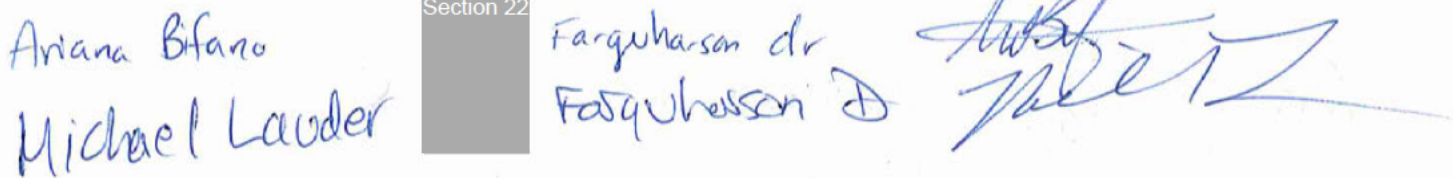 Ariana Bifano Section 22 Farquharson dr
Michael Lauder Farquharson D